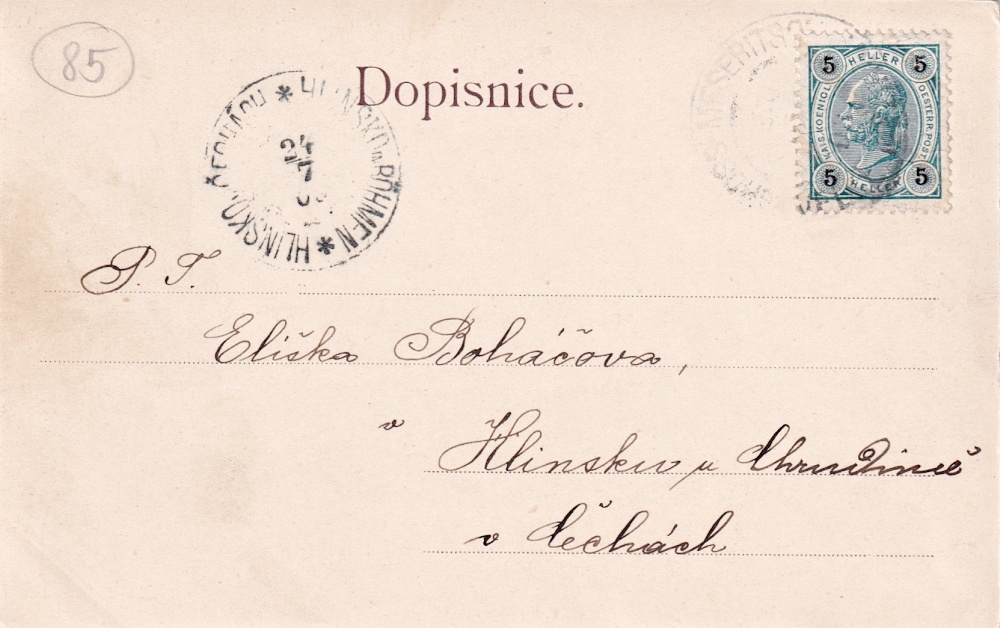 85
Dopisnice.
HLINSKO in BÖHMEN * HLINSKO, V ČECHÁCH *
24
7
MESERITSCH
5 HELLER 5
KAIS. KOENIGL. OESTERR. POST.
5 HELLER 5
P. T.
Eliška Boháčova,
v
Hlinsku u Chrudimě
v Čechách